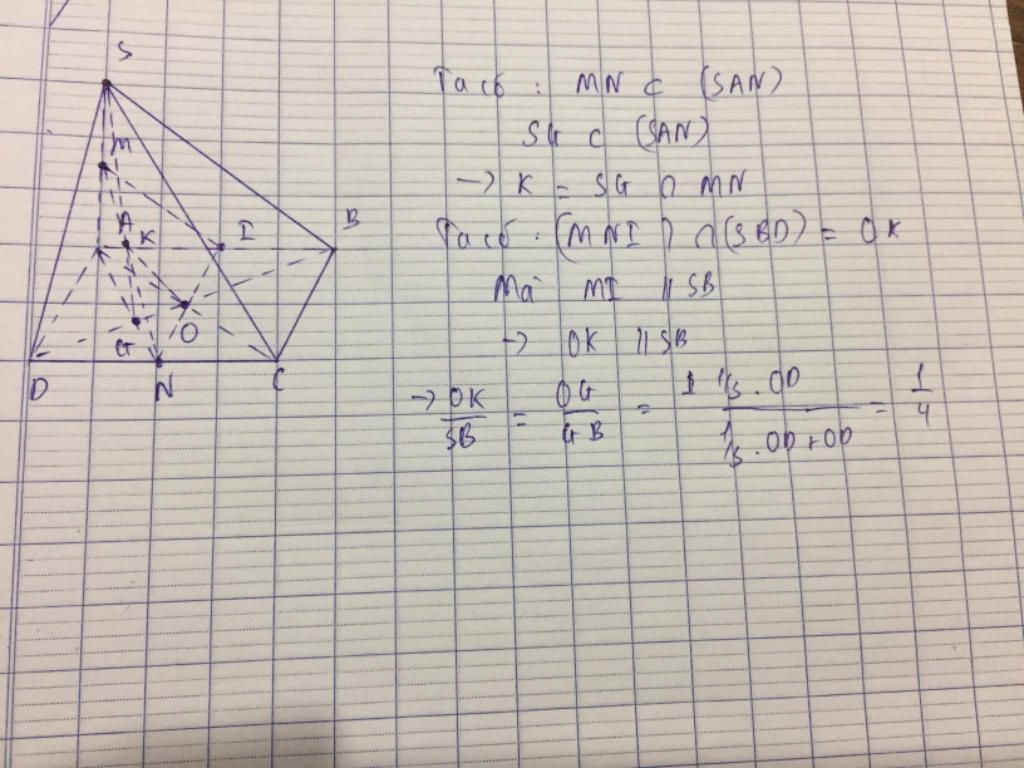 S
M
A
K
I
B
G
O
D
N
C
Ta có : MN ⊂ (SAN)
SG ⊂ (SAN)
→ K = SG ∩ MN
Ta có : (MNI) ∩ (SBD) = OK
Mà MI // SB
→ OK // SB
→ OK/SB = OG/GB = (1/3 . OD)/(1/3 . OD + OD) = 1/4